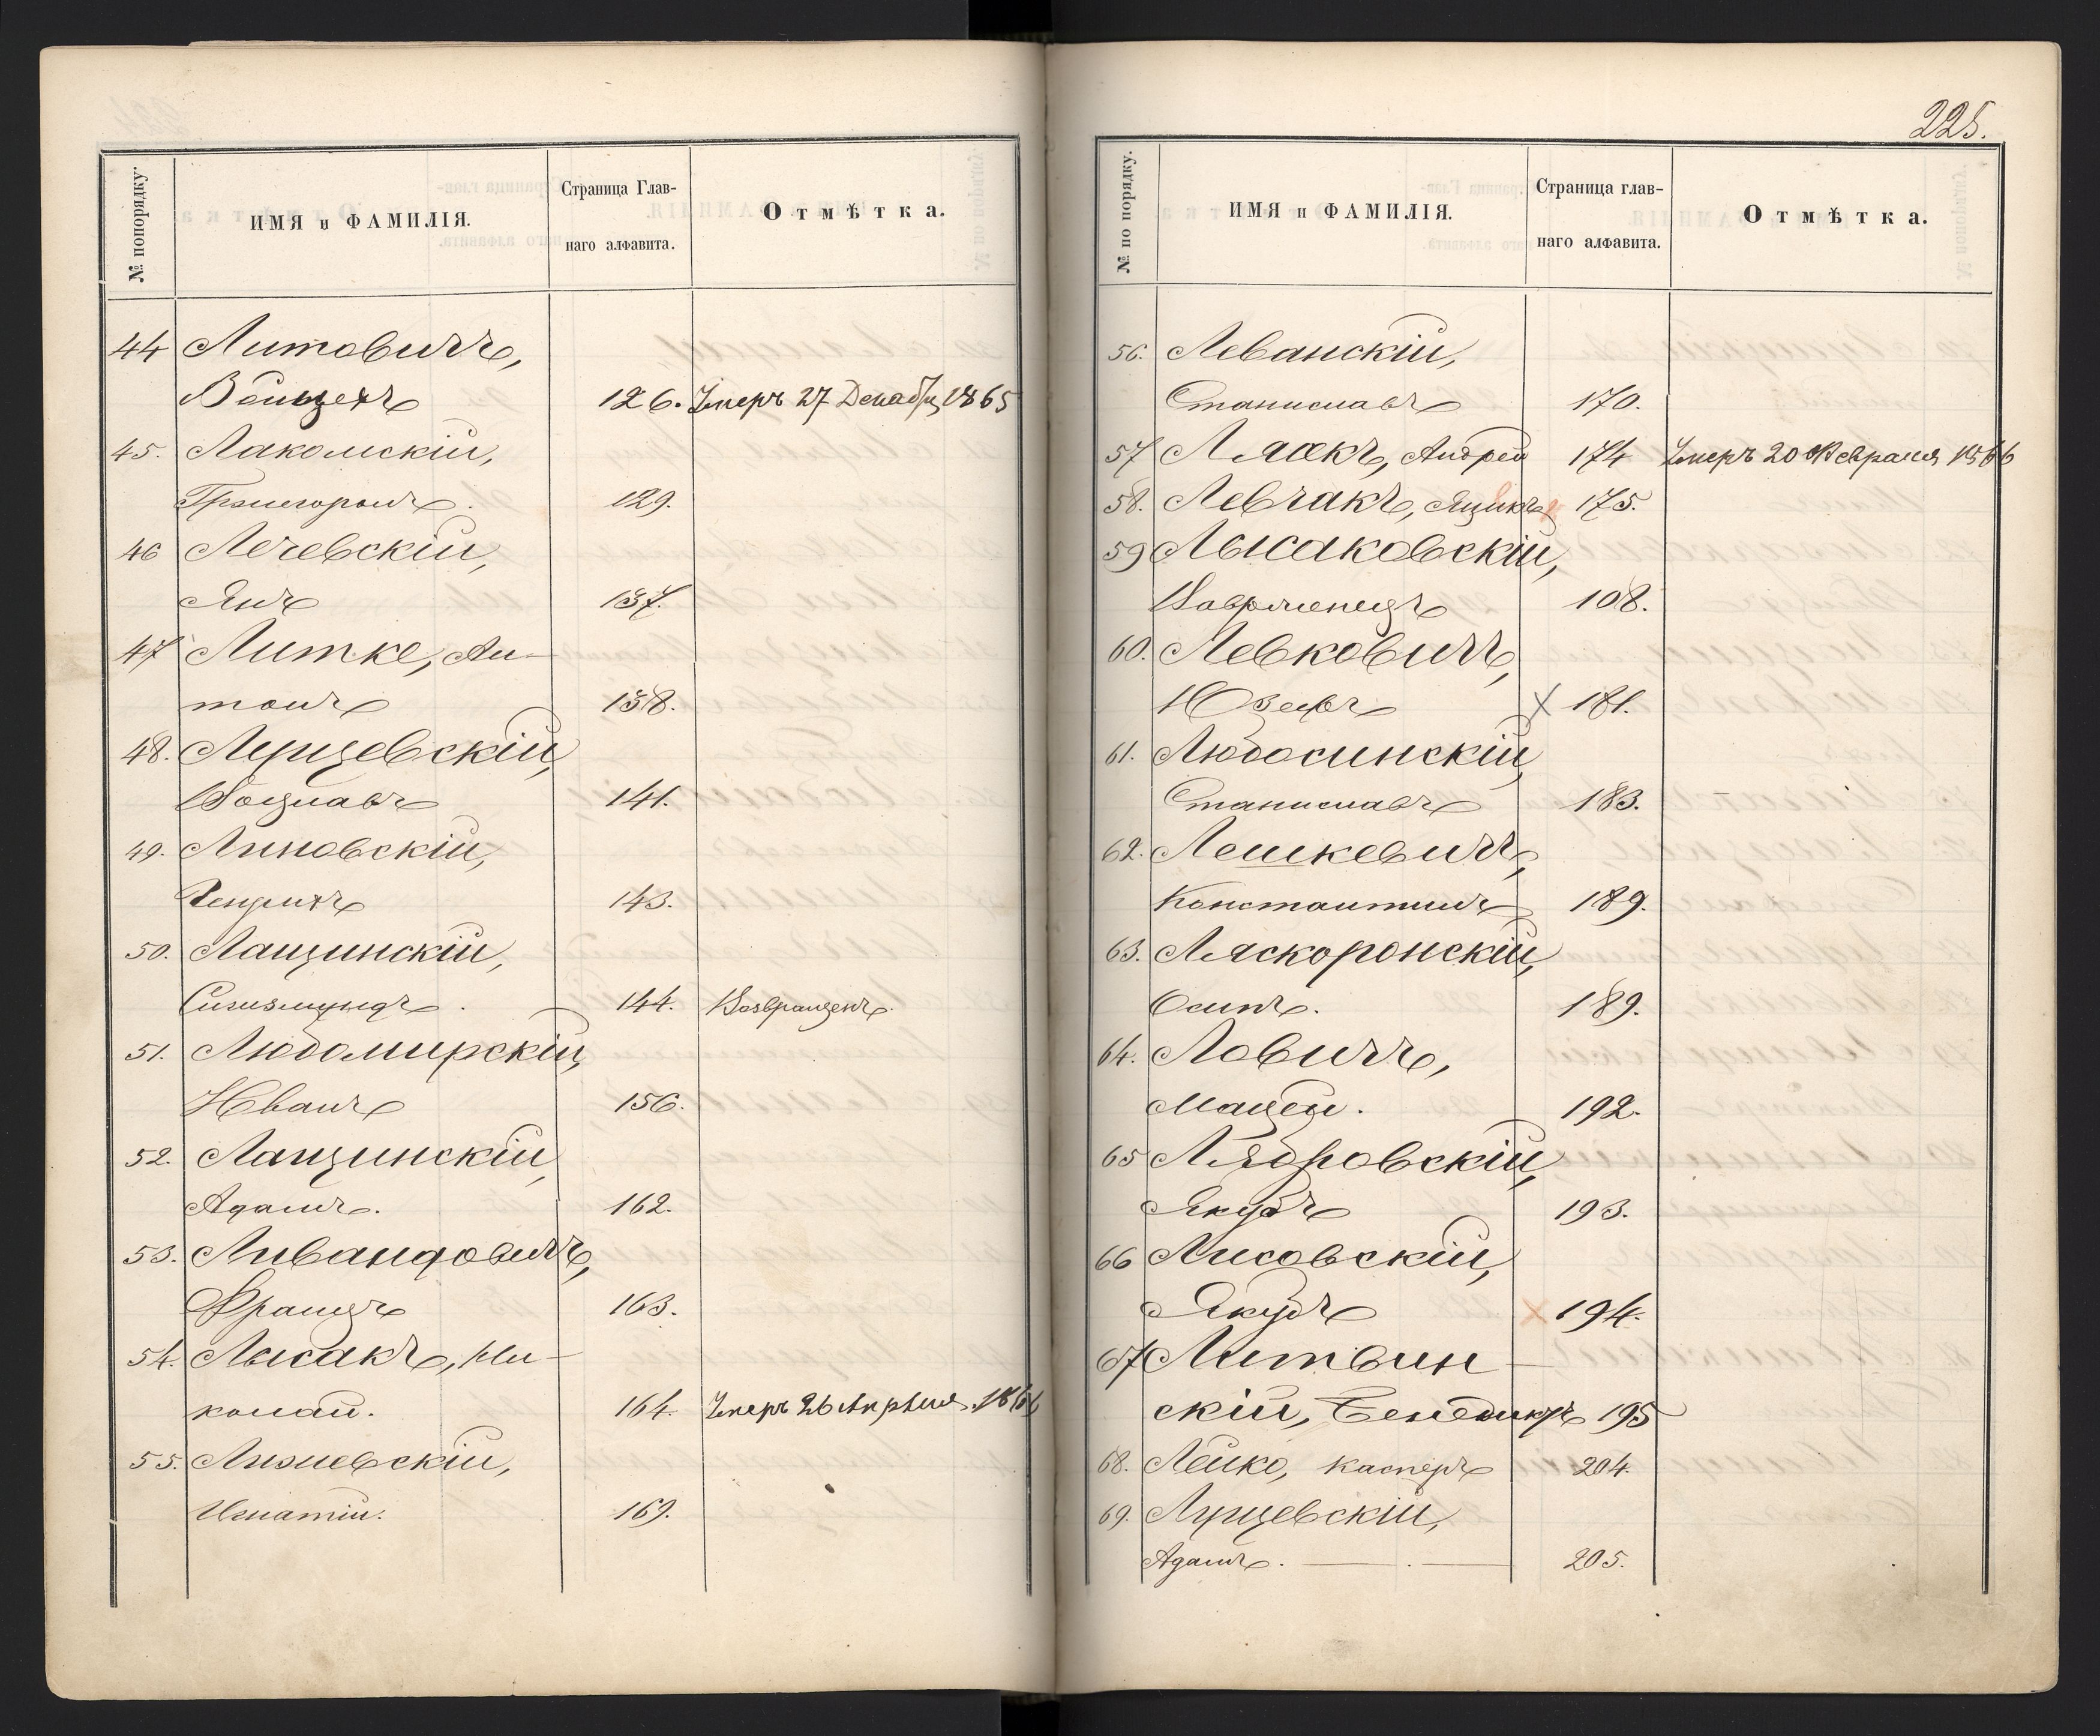 № попорядку.
ИМЯ и ФАМИЛІЯ.
Страница Глав-
наго алфавита.
Отмѣтка.
44 Литовичъ,
Войцехъ 126. Умеръ 27 Декабр. 1865
45. Лакомскій,
129.
46 Лечевскій,
Янъ 137.
47 Литке, Ан-
тонъ 138.
48. Лущевскій,
Вацлавъ 141.
49. Линовскій,
Генрихъ 143.
50. Лащинскій,
Сигизмундъ. 144. Возвращенъ.
51. Любомирскій,
Иванъ 156.
52. Лащинскій,
Адамъ. 162.
53. Ливандовичъ,
Францъ 163.
54. Лысакъ, Ни-
колай. 164. Умеръ 26 Апрѣля 1866
55. Лизневскій,
Игнатій. 169.
225.
№ по порядку.
ИМЯ и ФАМИЛІЯ.
Страница глав-
наго алфавита.
Отмѣтка.
56. Леванскій,
Станиславъ 170.
57 Андрей 174 Умеръ 20 Февраля 1866
58. Левчакъ, Яцекъ 175.
59 Лысаковскій,
Вавржинецъ 108.
60. Левковичъ,
Юзефъ х 181.
61. Любосинскій,
Станиславъ 183.
62. Лешкевичъ,
Константинъ 189.
63. Ляскоронскій,
Осипъ. 189.
64. Ловичъ,
Мацей. 192.
65 Лядровскій,
Якубъ 193.
66 Лисовскій,
Якубъ х 194.
67 Литвин-
скій, Бенедиктъ 195
68. Лейко, Касперъ 204.
69. Лущевскій,
Адамъ. 205.